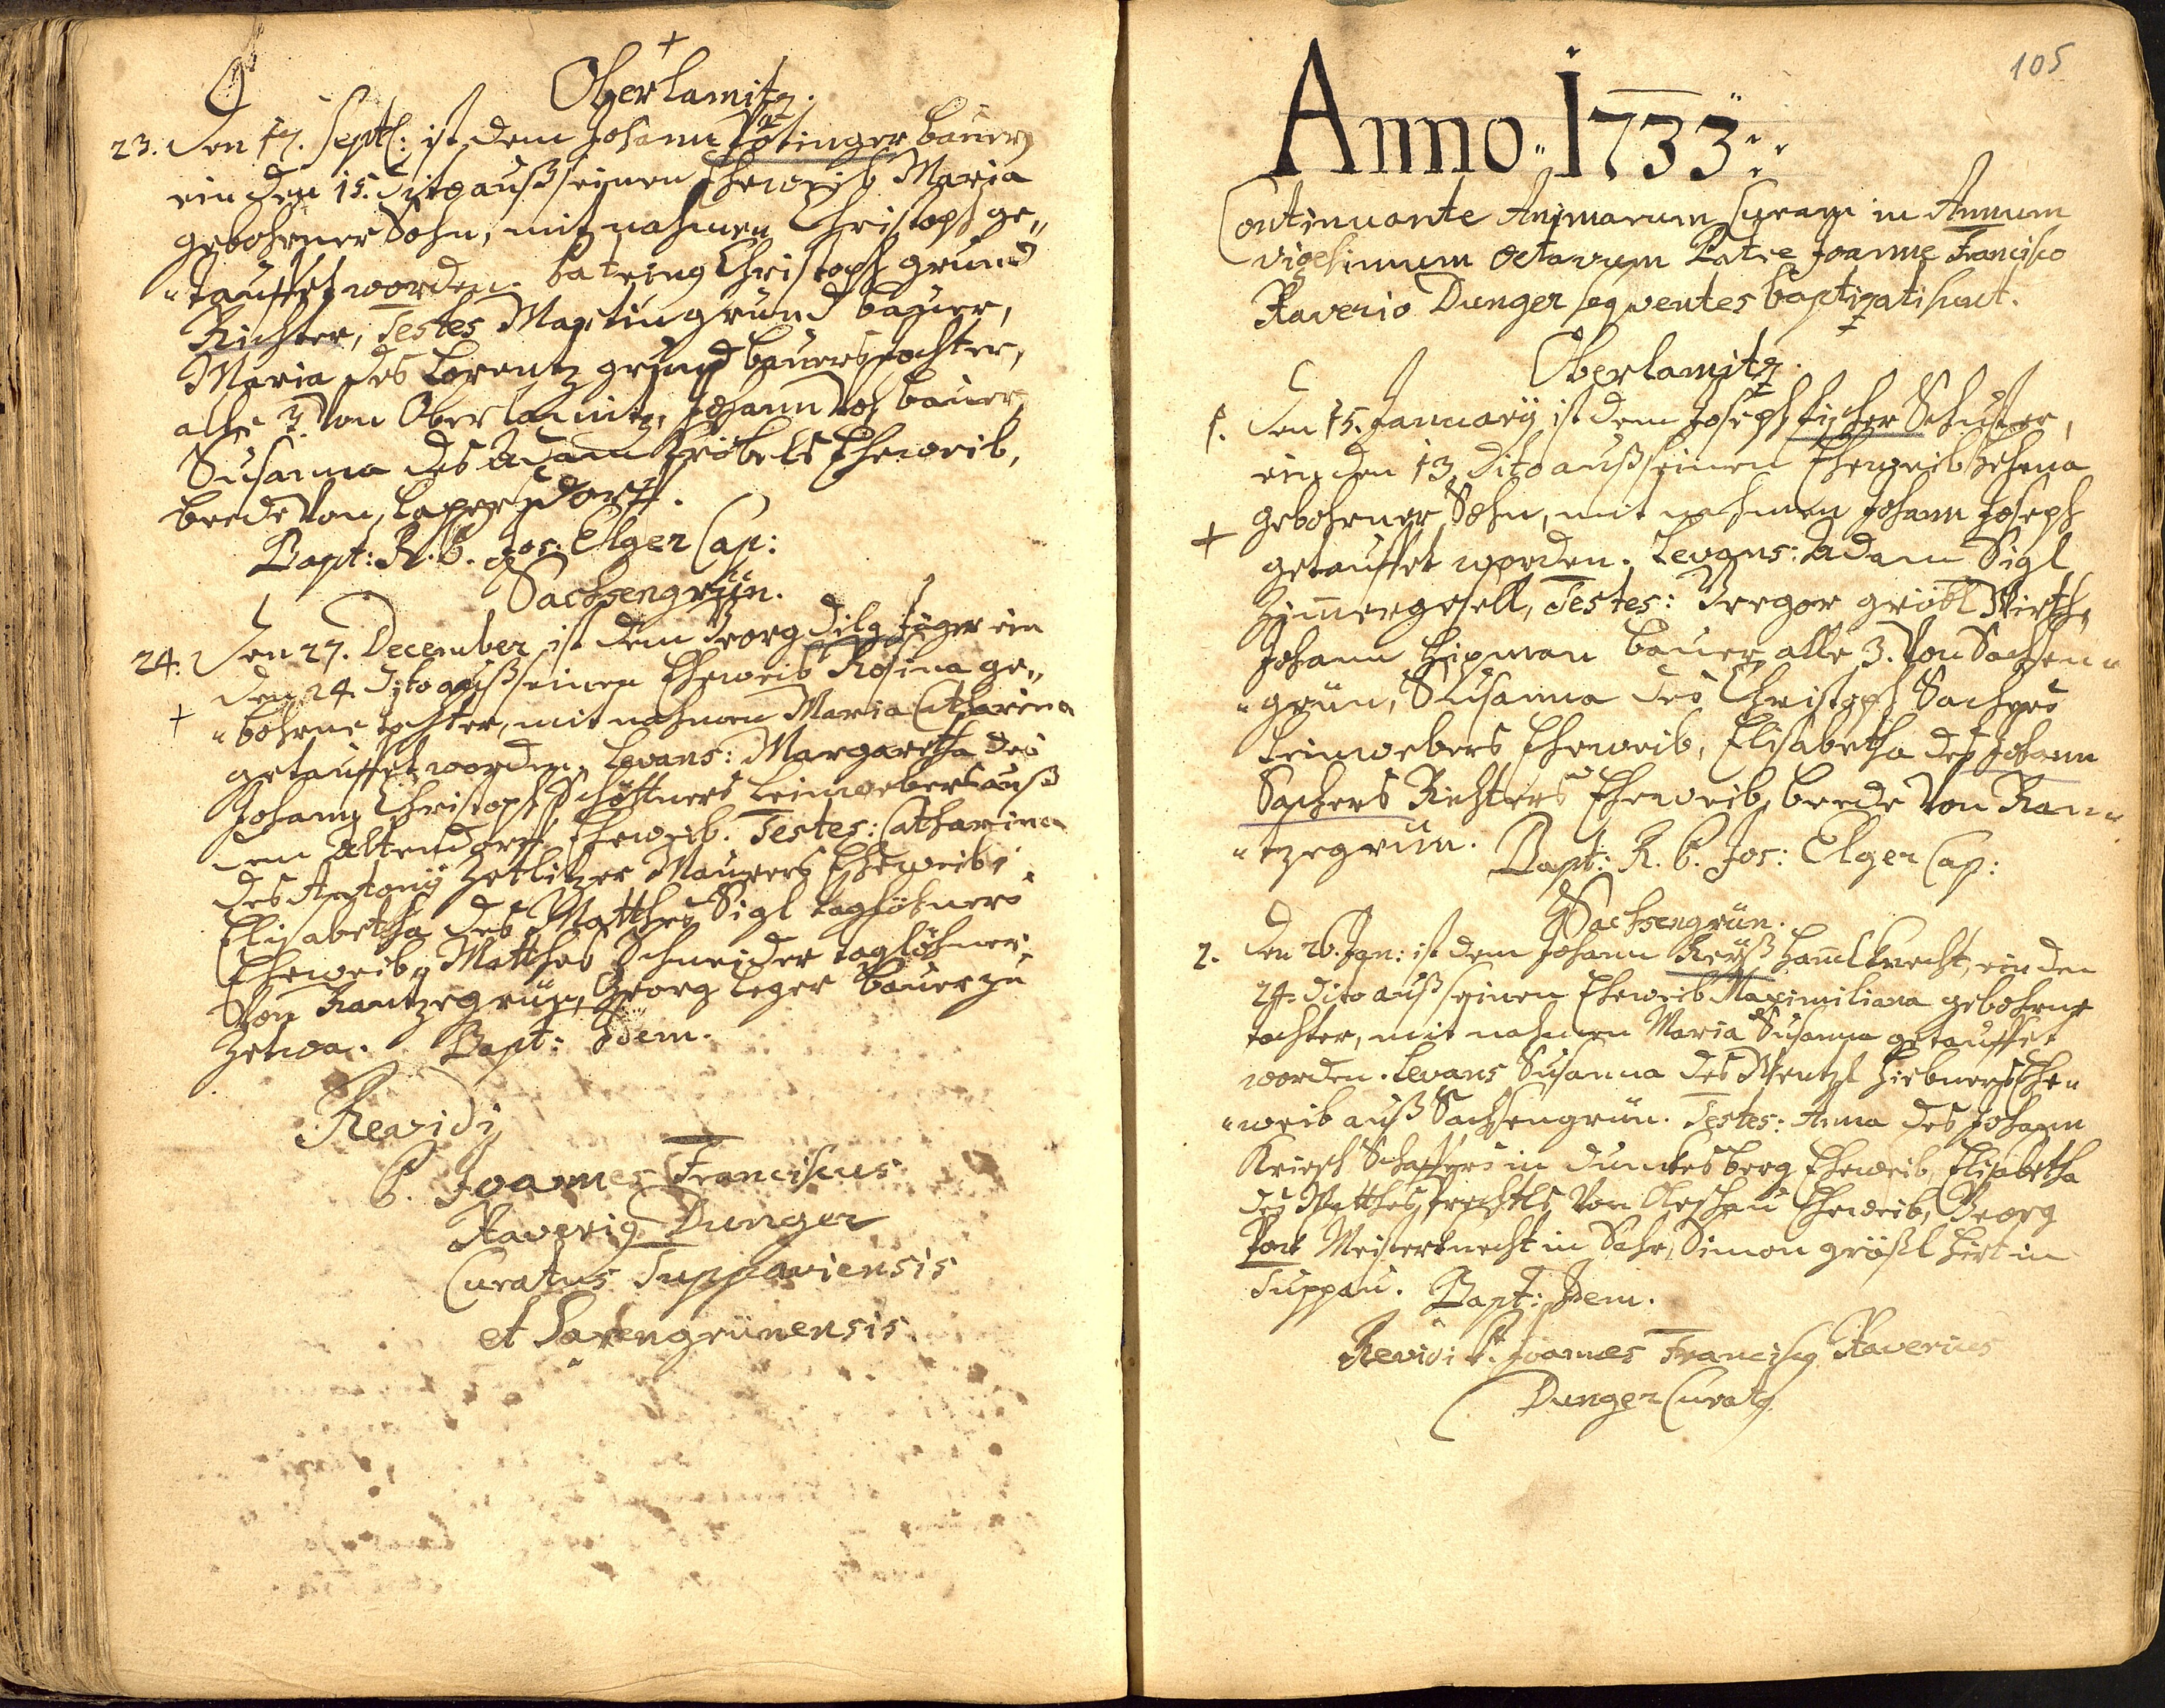 +
Oberlamitz.
23. Den 17. Septl: ist dem Johann Pötinger bauer
ein den 15. dito auß seinen Eheweib Maria
gebohrner Sohn, mit nahmen Christoph ge„
„tauffet worden. Patrinus Christoph grund
Richter, Testes Martin grund bauer,
Maria des Lorentz grund bauers tochter,
alle 3. Von Oberlamitz, Johann bauer,
Susanna des Adam Eheweib,
beede Von Lapersdorff.
Bapt: R. P. Jos: Elger Cap:
Sachsengrün.
24. Den 27. December ist dem Georg Dilg Jäger ein
den 24. Dito auß seinen Eheweib Rosina ge„
+ „bohrne tochter, mit nahmen Maria Catharina
getauffet worden. Levans: Margaretha des
Johann Christoph Schöttners Leinwebers auß
dem Altendorff Eheweib. Testes: Catharina
des Antonÿ Zetlitzer Maurers Eheweib,
Elisabetha des Matthes Sigl taglöhners
Eheweib, Matthes Schneider taglöhner
Von Rantzegrün, Georg Leger bauer zu
Zetwa. Bapt: Idem.
Revidi
P. Joannes Franciscus
Xaverig Dunger
Curatus Duppaviensis
et Saxengrünensis
105
Anno 1733
Continuante Animarum Curam in Annum
vigesimum octavum Patre Joanne Francisco
Xaverio Dunger seqventes baptizati sunt.
+
Oberlamitz.
1. Den 15. Januarÿ ist dem Joseph Fischer Schuster,
ein den 13. Dito auß seinen Eheweib Helena
+ gebohrner Sohn, mit nahmen Johann Joseph
getauffet worden. Levans: Adam Sigl
Zimmergesell, Testes: Gregor gröbl Wirth,
Johann Hipman bauer, alle 3. Von Sachsen„
„grün, Susanna des Christoph Sachers
Leinwebers Eheweib, Elisabetha des Johann
Sachers Richters Eheweib, beede Von Ran„
„tzegrün. Bapt: R. P. Jos: Elger Cap:
Sachsengrün.
2. Den 26. Jan: ist dem Johann Reÿß Hamlknecht, ein den
24. dito auß seinen Eheweib Maximiliana gebohrne
tochter, mit nahmen Maria Susanna getauffet
worden. Levans Susanna des Wentzl Hiebners Ehe„
„weib auß Sachsengrün. Testes: Anna des Johann
Kriesch Schaffers in Dunckesberg Eheweib, Elisabetha
des Matthes Von Olleschau Eheweib, Georg
Meisterknecht in Sahr, Simon größl Hirt in
Duppau. Bapt: Idem.
Revidi P. Joannes Franciscg Xaverius
Dunger Curatg